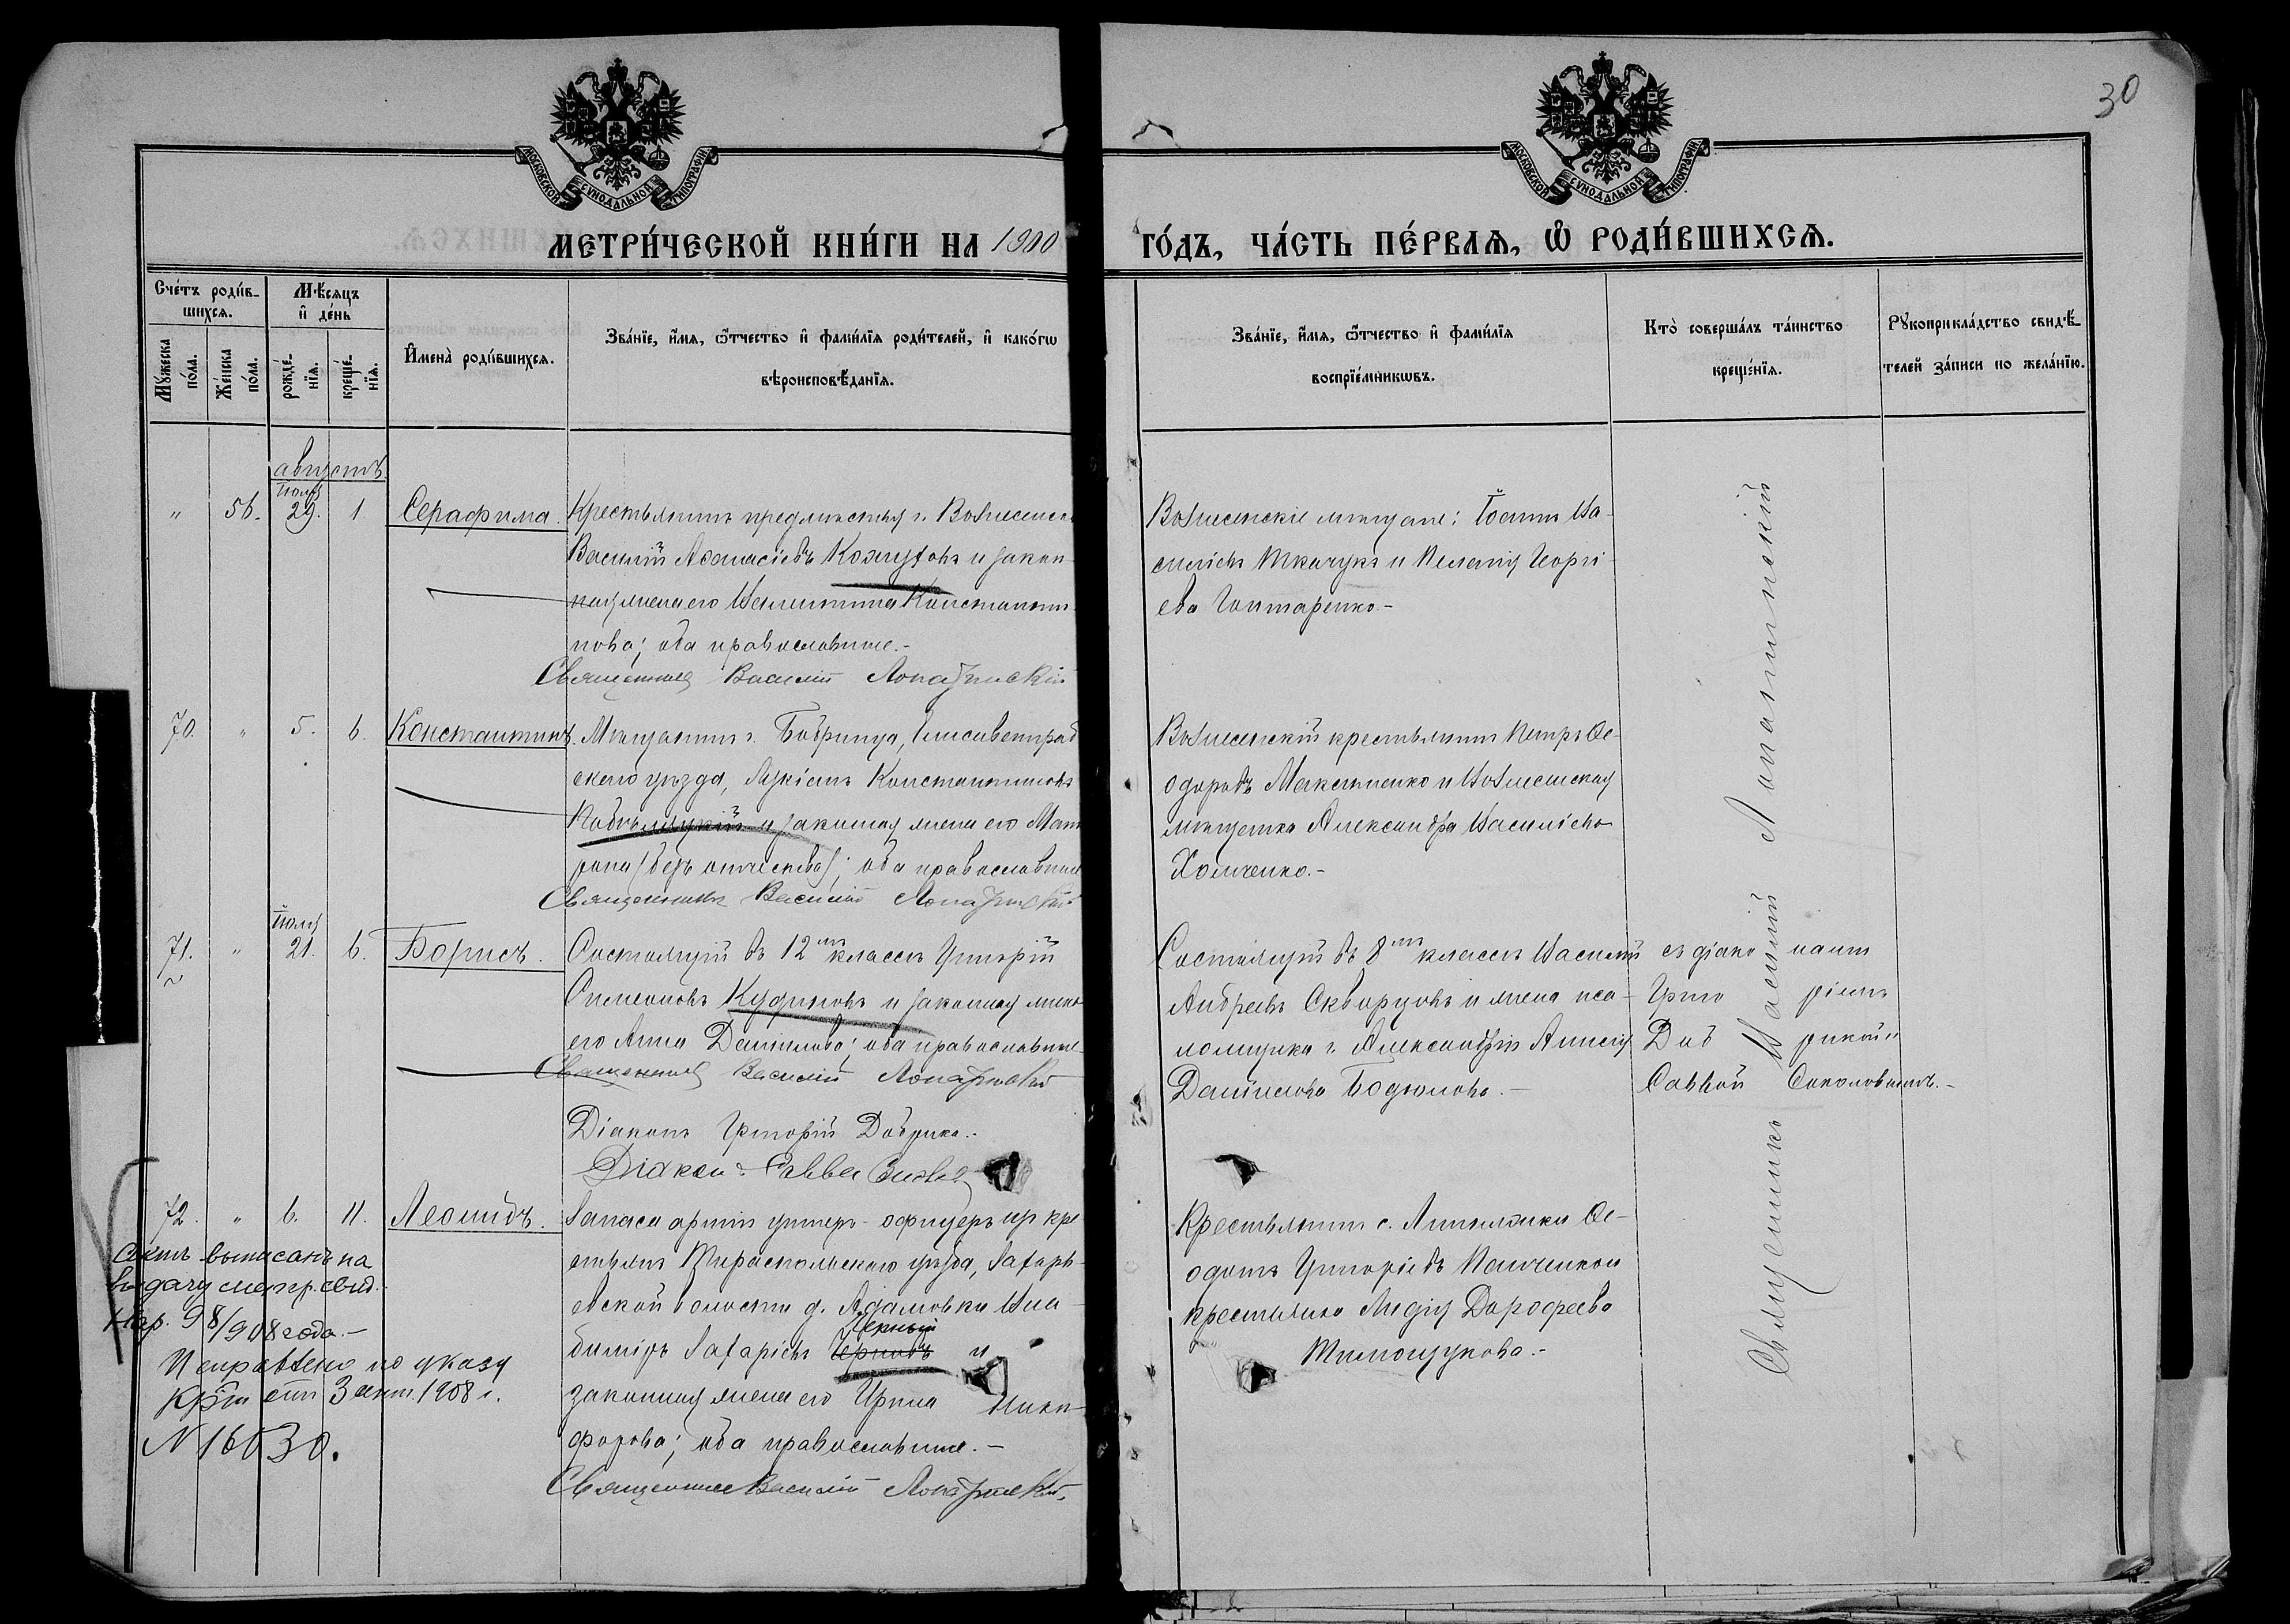 30
МОСКОВСКОЙ СѴНОДАЛЬНОЙ ТИПОГРАФІИ
МОСКОВСКОЙ СѴНОДАЛЬНОЙ ТИПОГРАФІИ
МЕТРИ́ЧЕСКОЙ КНИ́ГИ НА 1900
ГО́ДЪ, ЧА́СТЬ ПЕ́РВАѦ, Ѽ РОДИ́ВШИХСѦ.
Счéтъ роди́в-
шихсѧ.
Мꙋ́жеска по́ла.
Же́нска по́ла.
Мѣ́сѧцъ
и҆ де́нь
рожде́-
нїѧ.
креще́-
нїѧ.
И҆мена̀ роди́вшихсѧ.
Зва́нїе, и҆́мѧ, ѻ҆́тчество и҆ фами́лїѧ роди́телей, и҆ како́гѡ
вѣроисповѣ́данїѧ.
Зва́нїе, и҆́мѧ, ѻ҆́тчество и҆ фами́лїѧ
воспрїе́мникѡвъ.
Кто̀ соверша́лъ та́инство
креще́нїѧ.
Рꙋкоприкла́дство свидѣ́-
телей за́писи по жела́нїю.
августъ
Іюля
" 56. 29. 1 Серафима.
Крестьянинъ предмѣстья г. Вознесенск
Василій Аѳанасіевъ Кожуховъ и закон-
ная жена его Валентина Константи-
нова; оба православные.-
Священникъ Василій Лопатинскій
Вознесенскіе мѣщане: Іоаннъ Ва-
сильевъ Ткачукъ и Пелагія Георгі-
ева Гонтаренко.-
70. " 5. 6. Константинъ.
Мѣщанинъ г. Бобринца, Елисаветград
скаго уѣзда, Лукіанъ Константиновъ
и законная жена его Мат
рона (безъ отчества); оба православные
Священникъ Василій Лопатинскій
Вознесенскій крестьянинъ Петръ Ѳе-
одоровъ Максименко и Вознесенская
мѣщанка Александра Васильева
Хомченко.-
Іюля
71. " 21. 6. Борисъ.
Состоящій въ 12мъ классѣ Григорій
Симеоновъ Кудиновъ и законная жена
его Анна Даніилова; оба православные
Священникъ Василій Лопатинскій
Діаконъ Григорій Добрика.-
Діаконъ Савва
Состоящій въ 8мъ классѣ Василій
Андреевъ Скворцовъ и жена пса-
ломщика г. Александріи Анисія
Даніилова Бодюлова.-
съ діаконами
Григоріемъ
Добрикой и
Саввой Соколовымъ.-
Священникъ Василій Лопатинскій
72. " 6. 11. Леонидъ.
Запаса арміи унтеръ-офицеръ изъ кре
стьянъ Тираспольскаго уѣзда, Захарь-
евской волости д. Адамовки Вла-
диміръ Захаріевъ Черновъ и
законная жена его Ирина Ники-
форова; оба православные.-
Священникъ Василій Лопатинскій.
Крестьянинъ с. Ѳе-
одотъ Григоріевъ Панченко и
крестьянка Лидія Дороѳеева
Тимощукова.-
Актъ выписанъ на
выдачу метр. свид.
98/908 года.-
Исправлено по указу
3 авг. 1908 г.
N 16030.